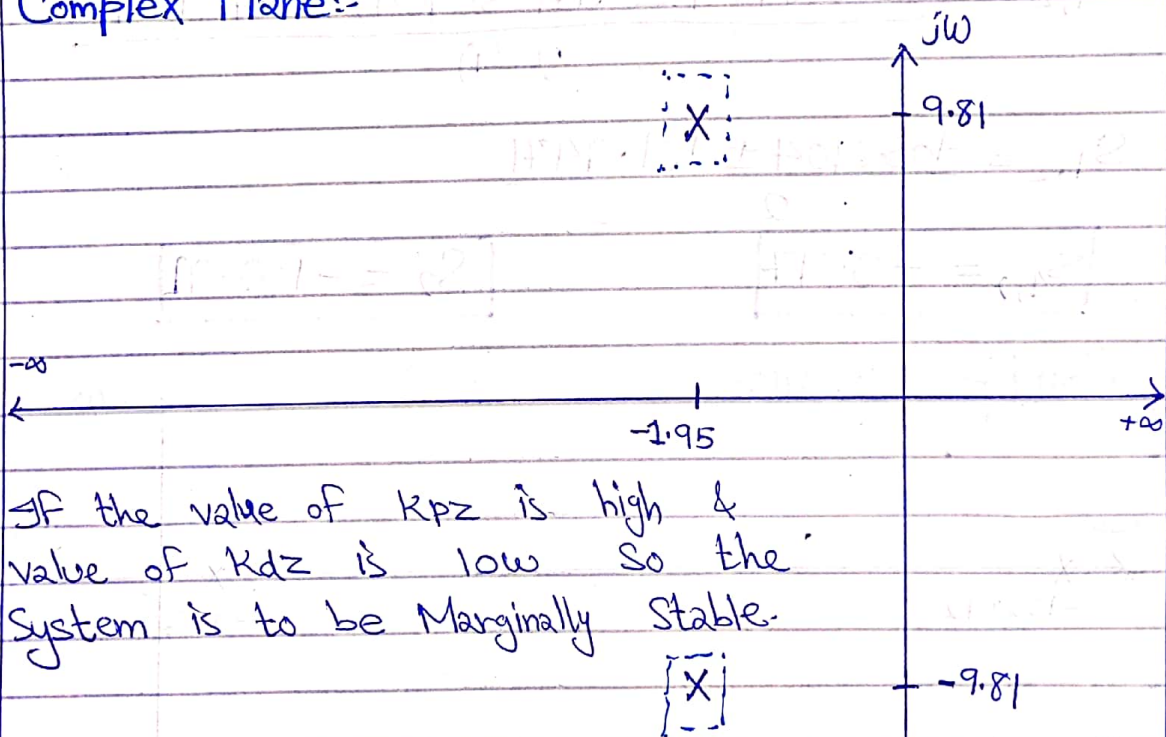 Complex Plane:-
jω
X
9.81
-∞
-1.95
+∞
If the value of Kpz is high &
value of Kdz is low so the
System is to be Marginally Stable.
X
-9.81